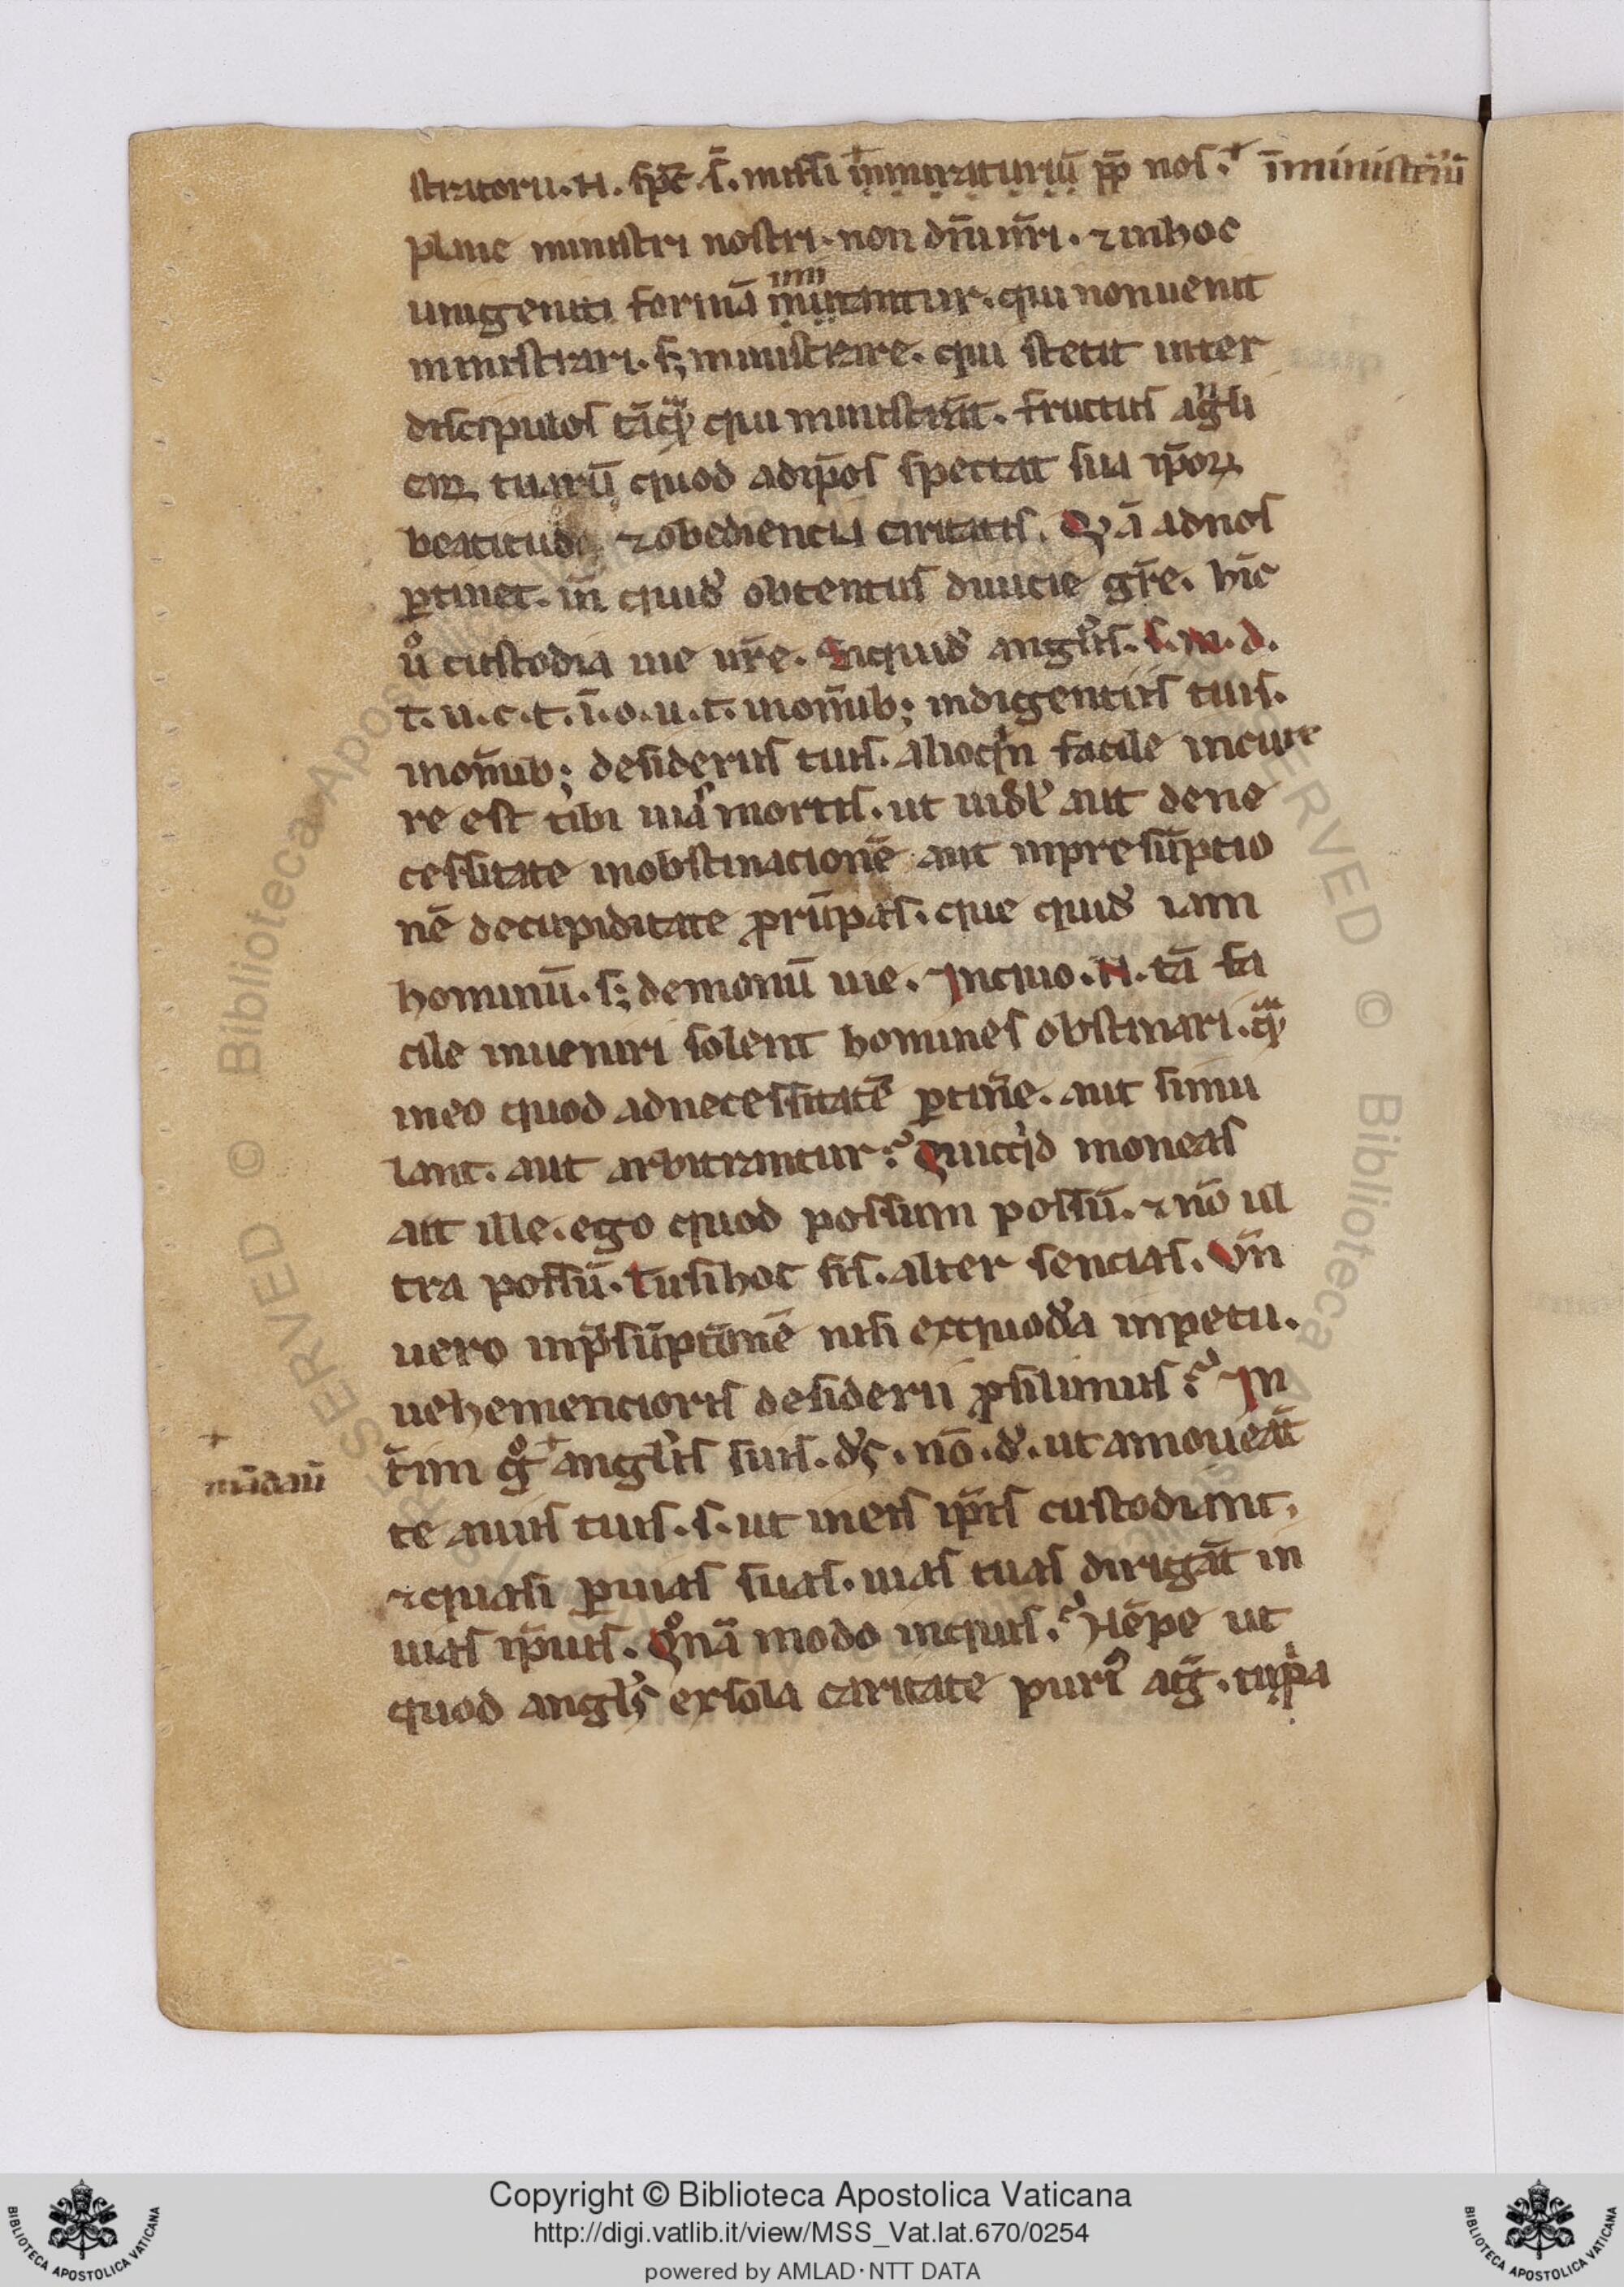 stratoru. N. sp̄c s̄. missi īnmuraturiū pp̄ nos.
+ īministeriū
plane ministri nostri. non dn̄i nr̄i. ⁊ inhoc
unigeniti formā mutantur. qui nonuenit
imi
ministrari. s; ministrare. qui stetit inter
discipulos tāqͣ qui ministrat. fructus agͥli
earꝝ tuarū quod adip̄os spectat sua ip̄oꝝ
beatitudo ⁊obediencia caritatis. Qā adnos
ꝑtinet. in̄ quid obtentus diuicie gr̄e. hīc
uͦ custodia uie ur̄e. Inquid anglͥis. s. m. d.
t. u. c. t. ī. o. u. t. inom̄ib; indigentiis tuis.
inom̄ib; desideriis tuis. alioqͥn facile incur
re est tibi uiaͫ mortis. ut uidͬ aut dene
cessitate inobstinacionē aut inpresūptio
nē decupiditate ꝓrūpas. que quid iam
hominū. s; demonū uie. Inquo. N. tā fa
cile inueniri solent homines obstinari. qͣ
ineo quod adnecessitatē ꝑtin̄e. aut simu
lant. aut arbitrantur? Quicqͥd moneas
ait ille. ego quod possum possū. ⁊ nō ul
tra possū. tu si hoc sis. aliter sencias. Un̄
uero inp̄sūptōnē nisi exquodā inpetu.
uehemencioris desiderii ꝓsilimus? In
t̄im gͦ + anglͥis suis. d̄s. nō. d. ut amoueāt
+
mādauͭ
te auiis tuis. s. ut ineis ip̄is custodiant.
⁊quasi ꝑuias suas. uias tuas dirigāt in
uias ip̄uiis. Qͦnā modo inquis? Nēpe ut
quod anglͥs exsola caritate puri agͭ. tup̄a
Copyright © Biblioteca Apostolica Vaticana
http://digi.vatlib.it/view/MSS_Vat.lat.670/0254
powered by AMLAD·NTT DATA